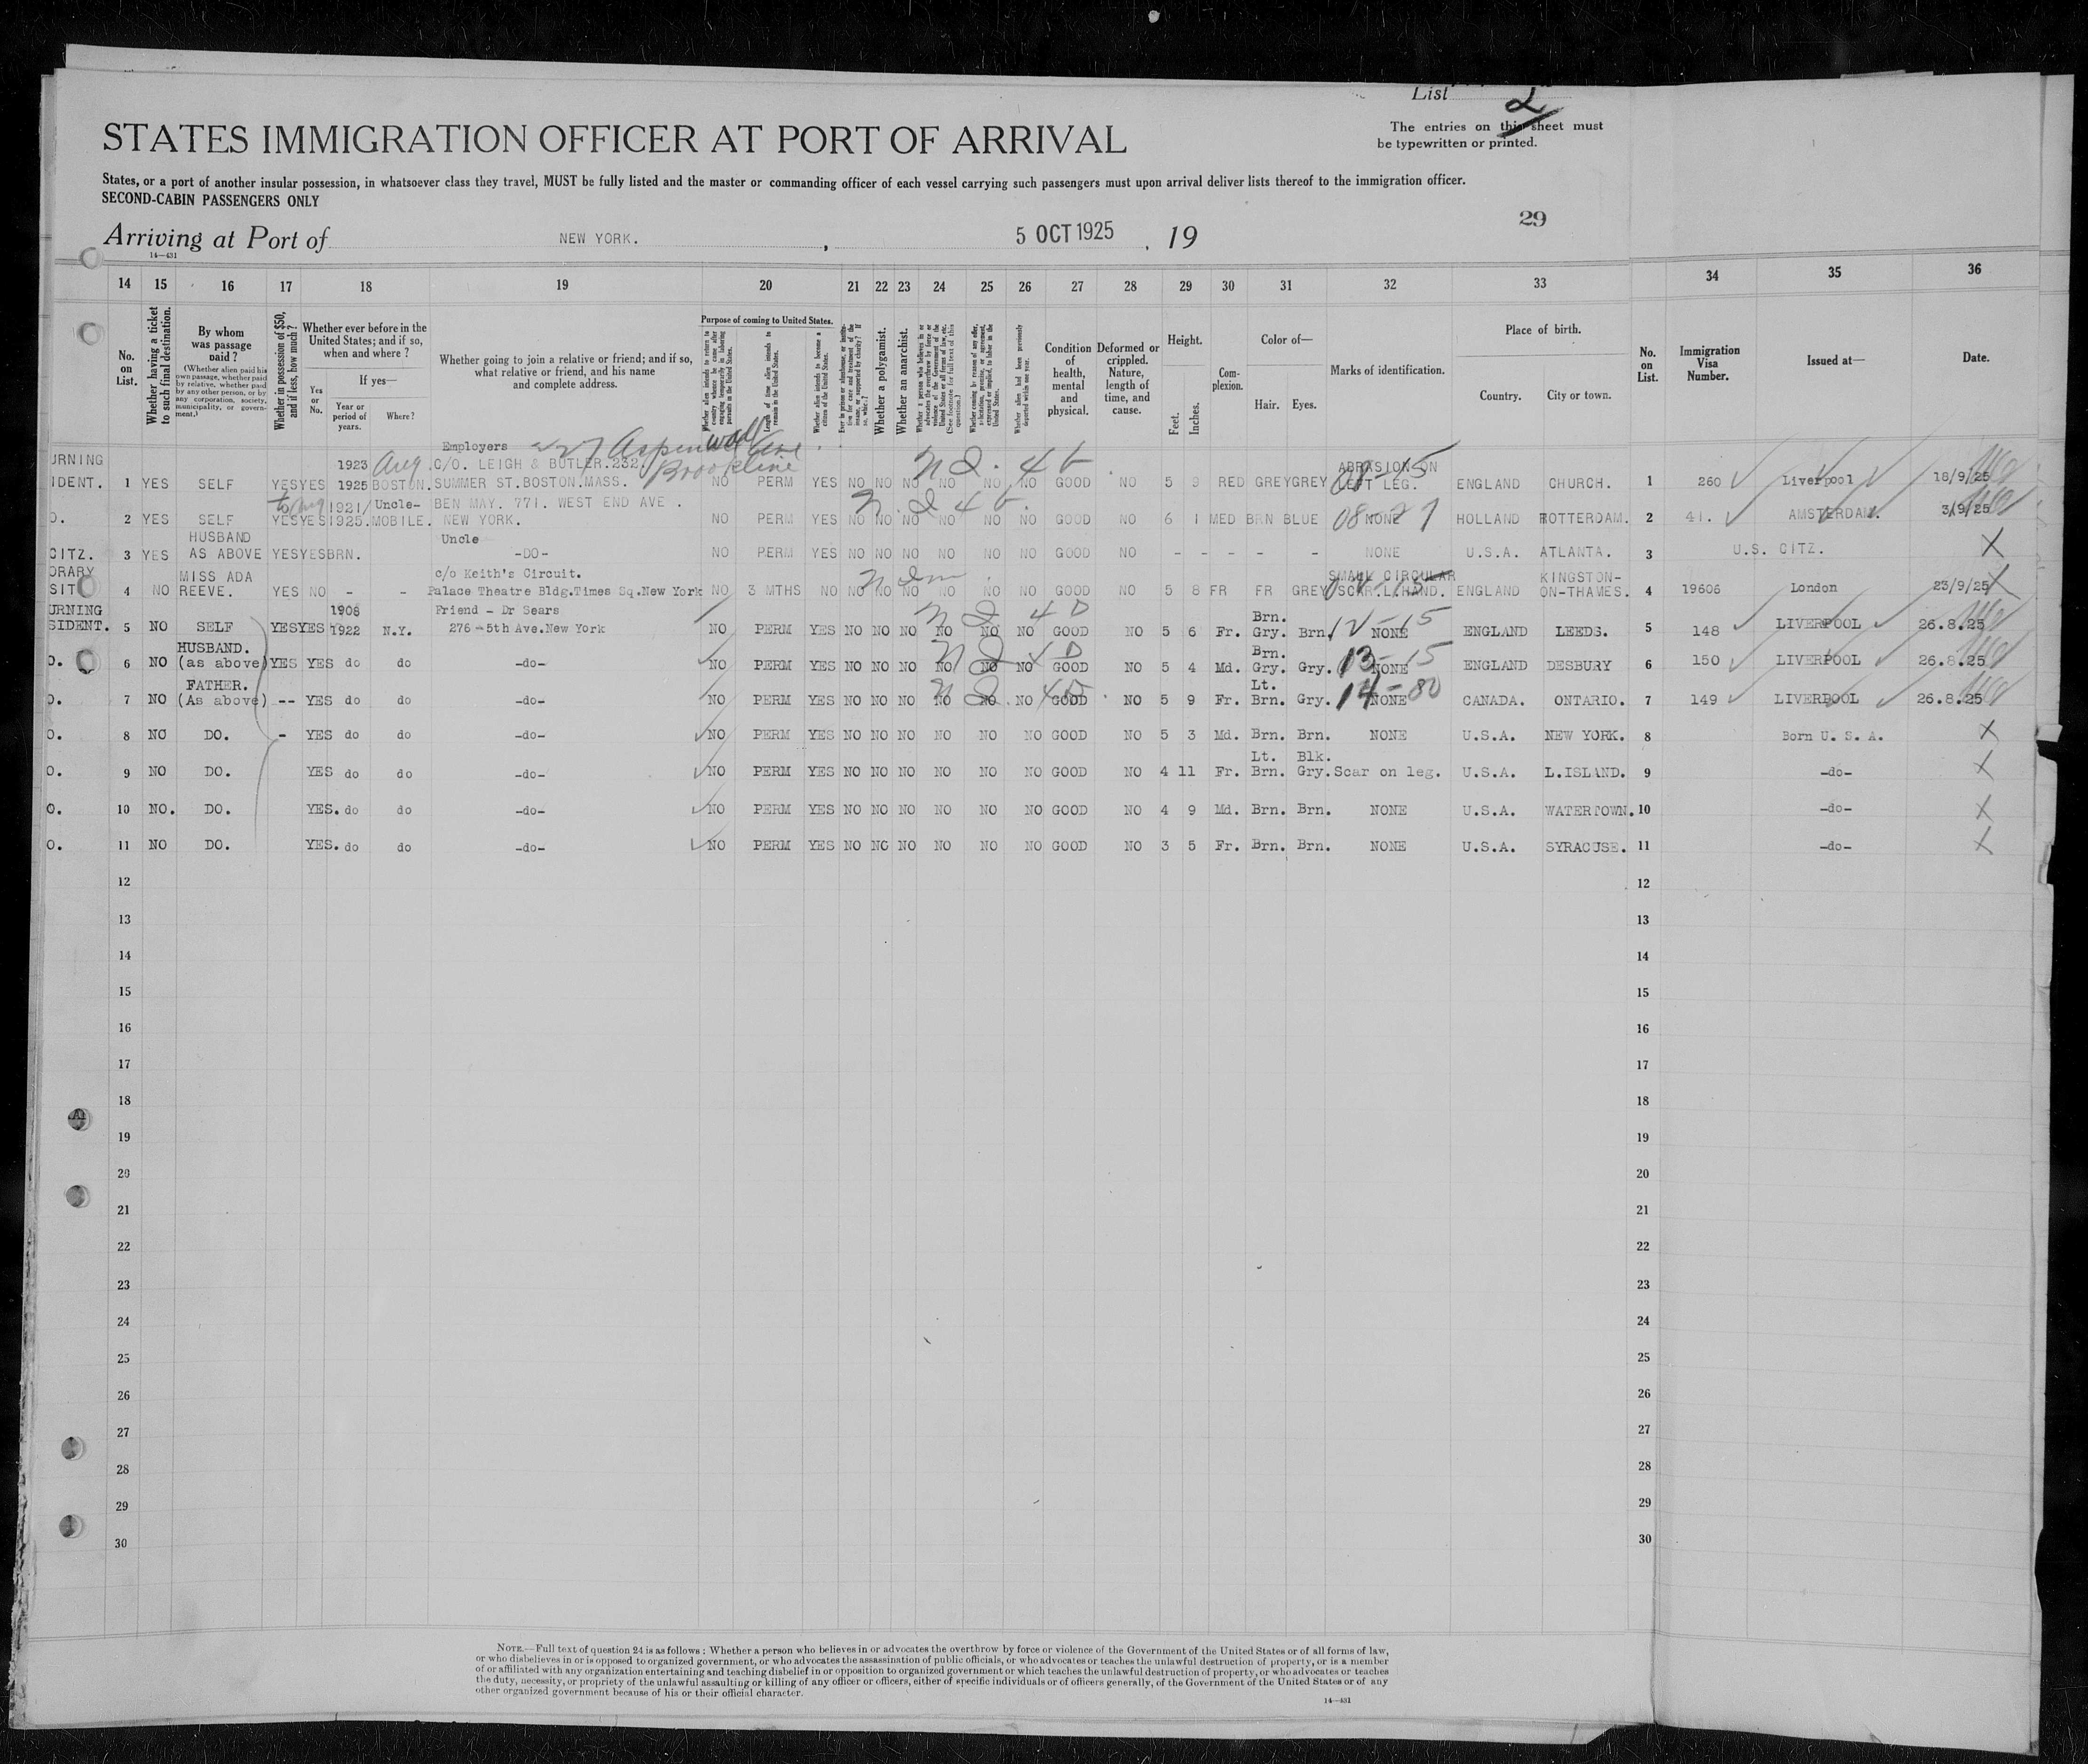 List 2
The entries on this sheet must
be typewritten or printed.
STATES IMMIGRATION OFFICER AT PORT OF ARRIVAL
States, or a port of another insular possession, in whatsoever class they travel, MUST be fully listed and the master or commanding officer of each vessel carrying such passengers must upon arrival deliver lists thereof to the immigration officer.
SECOND-CABIN PASSENGERS ONLY
29
Arriving at Port of NEW YORK. , 5 OCT 1925 , 19
14—431
14 15 16 17 18 19 20 21 22 23 24 25 26 27 28 29 30 31 32 33 34 35 36
No. on List.
Whether having a ticket to such final destination.
By whom was passage paid?
(Whether alien paid his own passage, whether paid by relative, whether paid by any other person, or by any corporation, society, municipality, or government.)
Whether in possession of $50, and if less, how much?
Whether ever before in the United States; and if so, when and where?
If yes—
Yes or No.
Year or period of years.
Where?
Whether going to join a relative or friend; and if so, what relative or friend, and his name and complete address.
Purpose of coming to United States.
Whether alien intends to return to country whence he came after engaging temporarily in laboring pursuits in the United States.
Length of time alien intends to remain in the United States.
Whether alien intends to become a citizen of the United States.
Whether a polygamist.
Whether an anarchist.
Condition of health, mental and physical.
Deformed or crippled. Nature, length of time, and cause.
Height.
Feet.
Inches.
Complexion.
Color of—
Hair. Eyes.
Marks of identification.
Place of birth.
Country. City or town.
No. on List.
Immigration Visa Number.
Issued at—
Date.
Employers 227 Aspenwall Ave
URNING 1923 Aug. C/O. LEIGH & BUTLER.232. Brookline ND. 4 ABRASION ON 08-15
IDENT. 1 YES SELF YES YES 1925 BOSTON. SUMMER ST.BOSTON.MASS. NO PERM YES NO NO NO NO NO NO GOOD NO 5 8 RED GREY GREY LEFT LEG. ENGLAND CHURCH. 1 260 Liverpool 18/9/25
1921/ Uncle- BEN MAY. 771. WEST END AVE .
O. 2 YES SELF YES YES 1925. MOBILE. NEW YORK. NO PERM YES NO NO NO NO NO NO GOOD NO 6 1 MED BRN BLUE NONE HOLLAND ROTTERDAM. 2 41. AMSTERDAM. 3/9/25
HUSBAND Uncle
CITZ. 3 YES AS ABOVE YES YES BRN. -DO- NO PERM YES NO NO NO NO NO NO GOOD NO - - - - - NONE U.S.A. ATLANTA. 3 U.S. CITZ. X
ORARY MISS ADA c/o Keith's Circuit. SMALL CIRCULAR KINGSTON-
SIT 4 NO REEVE. YES NO - - Palace Theatre Bldg.Times Sq.New York NO 3 MTHS NO NO NO NO NO NO NO GOOD NO 5 8 FR FR GREY SCAR.L.HAND. ENGLAND ON-THAMES. 4 19606 London 23/9/25 X
URNING 1906 Friend - Dr Sears ND 4D Brn. 12-15
SIDENT. 5 NO SELF YES YES 1922 N.Y. 276 - 5th Ave.New York NO PERM YES NO NO NO NO NO NO GOOD NO 5 6 Fr. Gry. Brn. NONE ENGLAND LEEDS. 5 148 LIVERPOOL 26.8.25
HUSBAND. ND 4D Brn. 13-15
O. 6 NO (as above) YES YES do do -do- NO PERM YES NO NO NO NO NO NO GOOD NO 5 4 Md. Gry. Gry. NONE ENGLAND DESBURY 6 150 LIVERPOOL 26.8.25
FATHER. ND 4D Lt. 14-80
O. 7 NO (As above) -- YES do do -do- NO PERM YES NO NO NO NO NO NO GOOD NO 5 9 Fr. Brn. Gry. NONE CANADA. ONTARIO. 7 149 LIVERPOOL 26.8.25
O. 8 NO DO. - YES do do -do- NO PERM YES NO NO NO NO NO NO GOOD NO 5 3 Md. Brn. Brn. NONE U.S.A. NEW YORK. 8 Born U. S. A. X
Lt. Blk.
O. 9 NO DO. YES do do -do- NO PERM YES NO NO NO NO NO NO GOOD NO 4 11 Fr. Brn. Gry. Scar on leg. U.S.A. L.ISLAND. 9 -do- X
O. 10 NO. DO. YES. do do -do- NO PERM YES NO NO NO NO NO NO GOOD NO 4 9 Md. Brn. Brn. NONE U.S.A. WATERTOWN. 10 -do- X
O. 11 NO DO. YES. do do -do- NO PERM YES NO NO NO NO NO NO GOOD NO 3 5 Fr. Brn. Brn. NONE U.S.A. SYRACUSE. 11 -do- X
12 12
13 13
14 14
15 15
16 16
17 17
18 18
19 19
20 20
21 21
22 22
23 23
24 24
25 25
26 26
27 27
28 28
29 29
30 30
NOTE.—Full text of question 24 is as follows: Whether a person who believes in or advocates the overthrow by force or violence of the Government of the United States or of all forms of law,
or who disbelieves in or is opposed to organized government, or who advocates the assassination of public officials, or who advocates or teaches the unlawful destruction of property, or is a member
of or affiliated with any organization entertaining and teaching disbelief in or opposition to organized government or which teaches the unlawful destruction of property, or who advocates or teaches
the duty, necessity, or propriety of the unlawful assaulting or killing of any officer or officers, either of specific individuals or of officers generally, of the Government of the United States or of any
other organized government because of his or their official character.
14—431